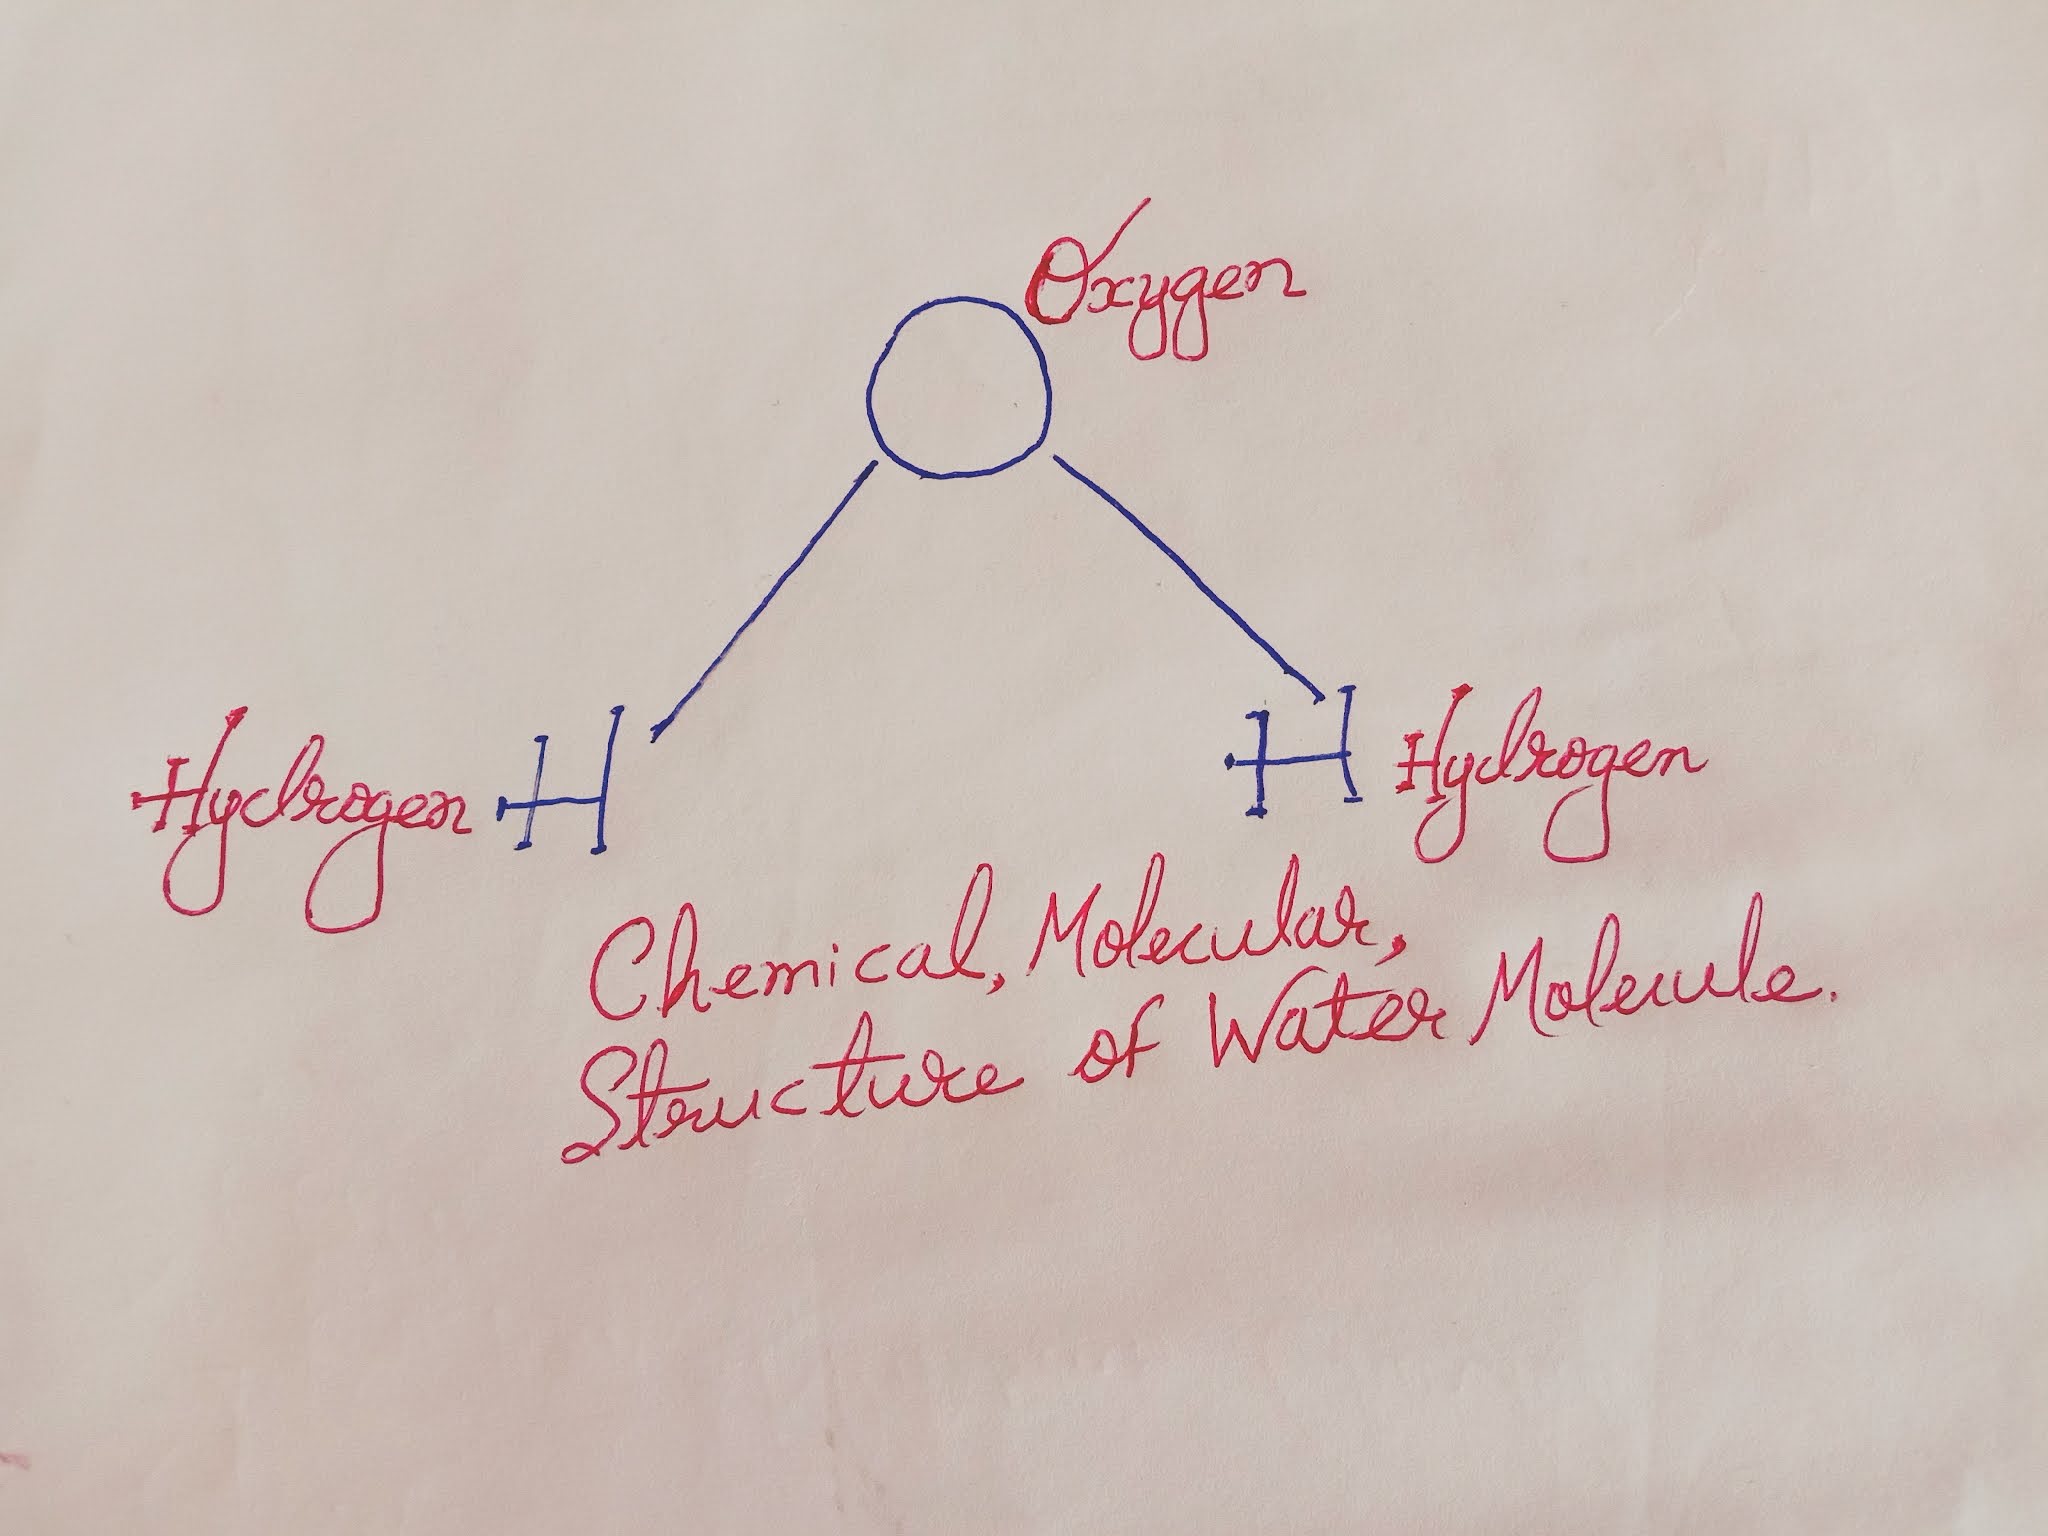 Oxygen
O
Hydrogen H
H Hydrogen
Chemical, Molecular,
Structure of Water Molecule.